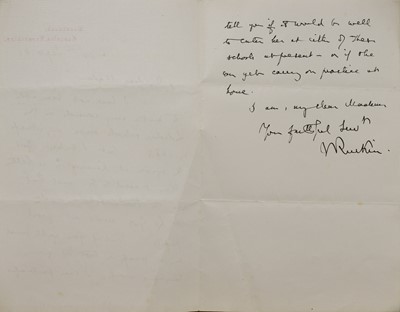 tell you if it would be well
to enter her at either of these
schools at present – or if she
can yet carry on practice at
home.
I am, my dear Madam
Your faithful Servt
JRuskin.